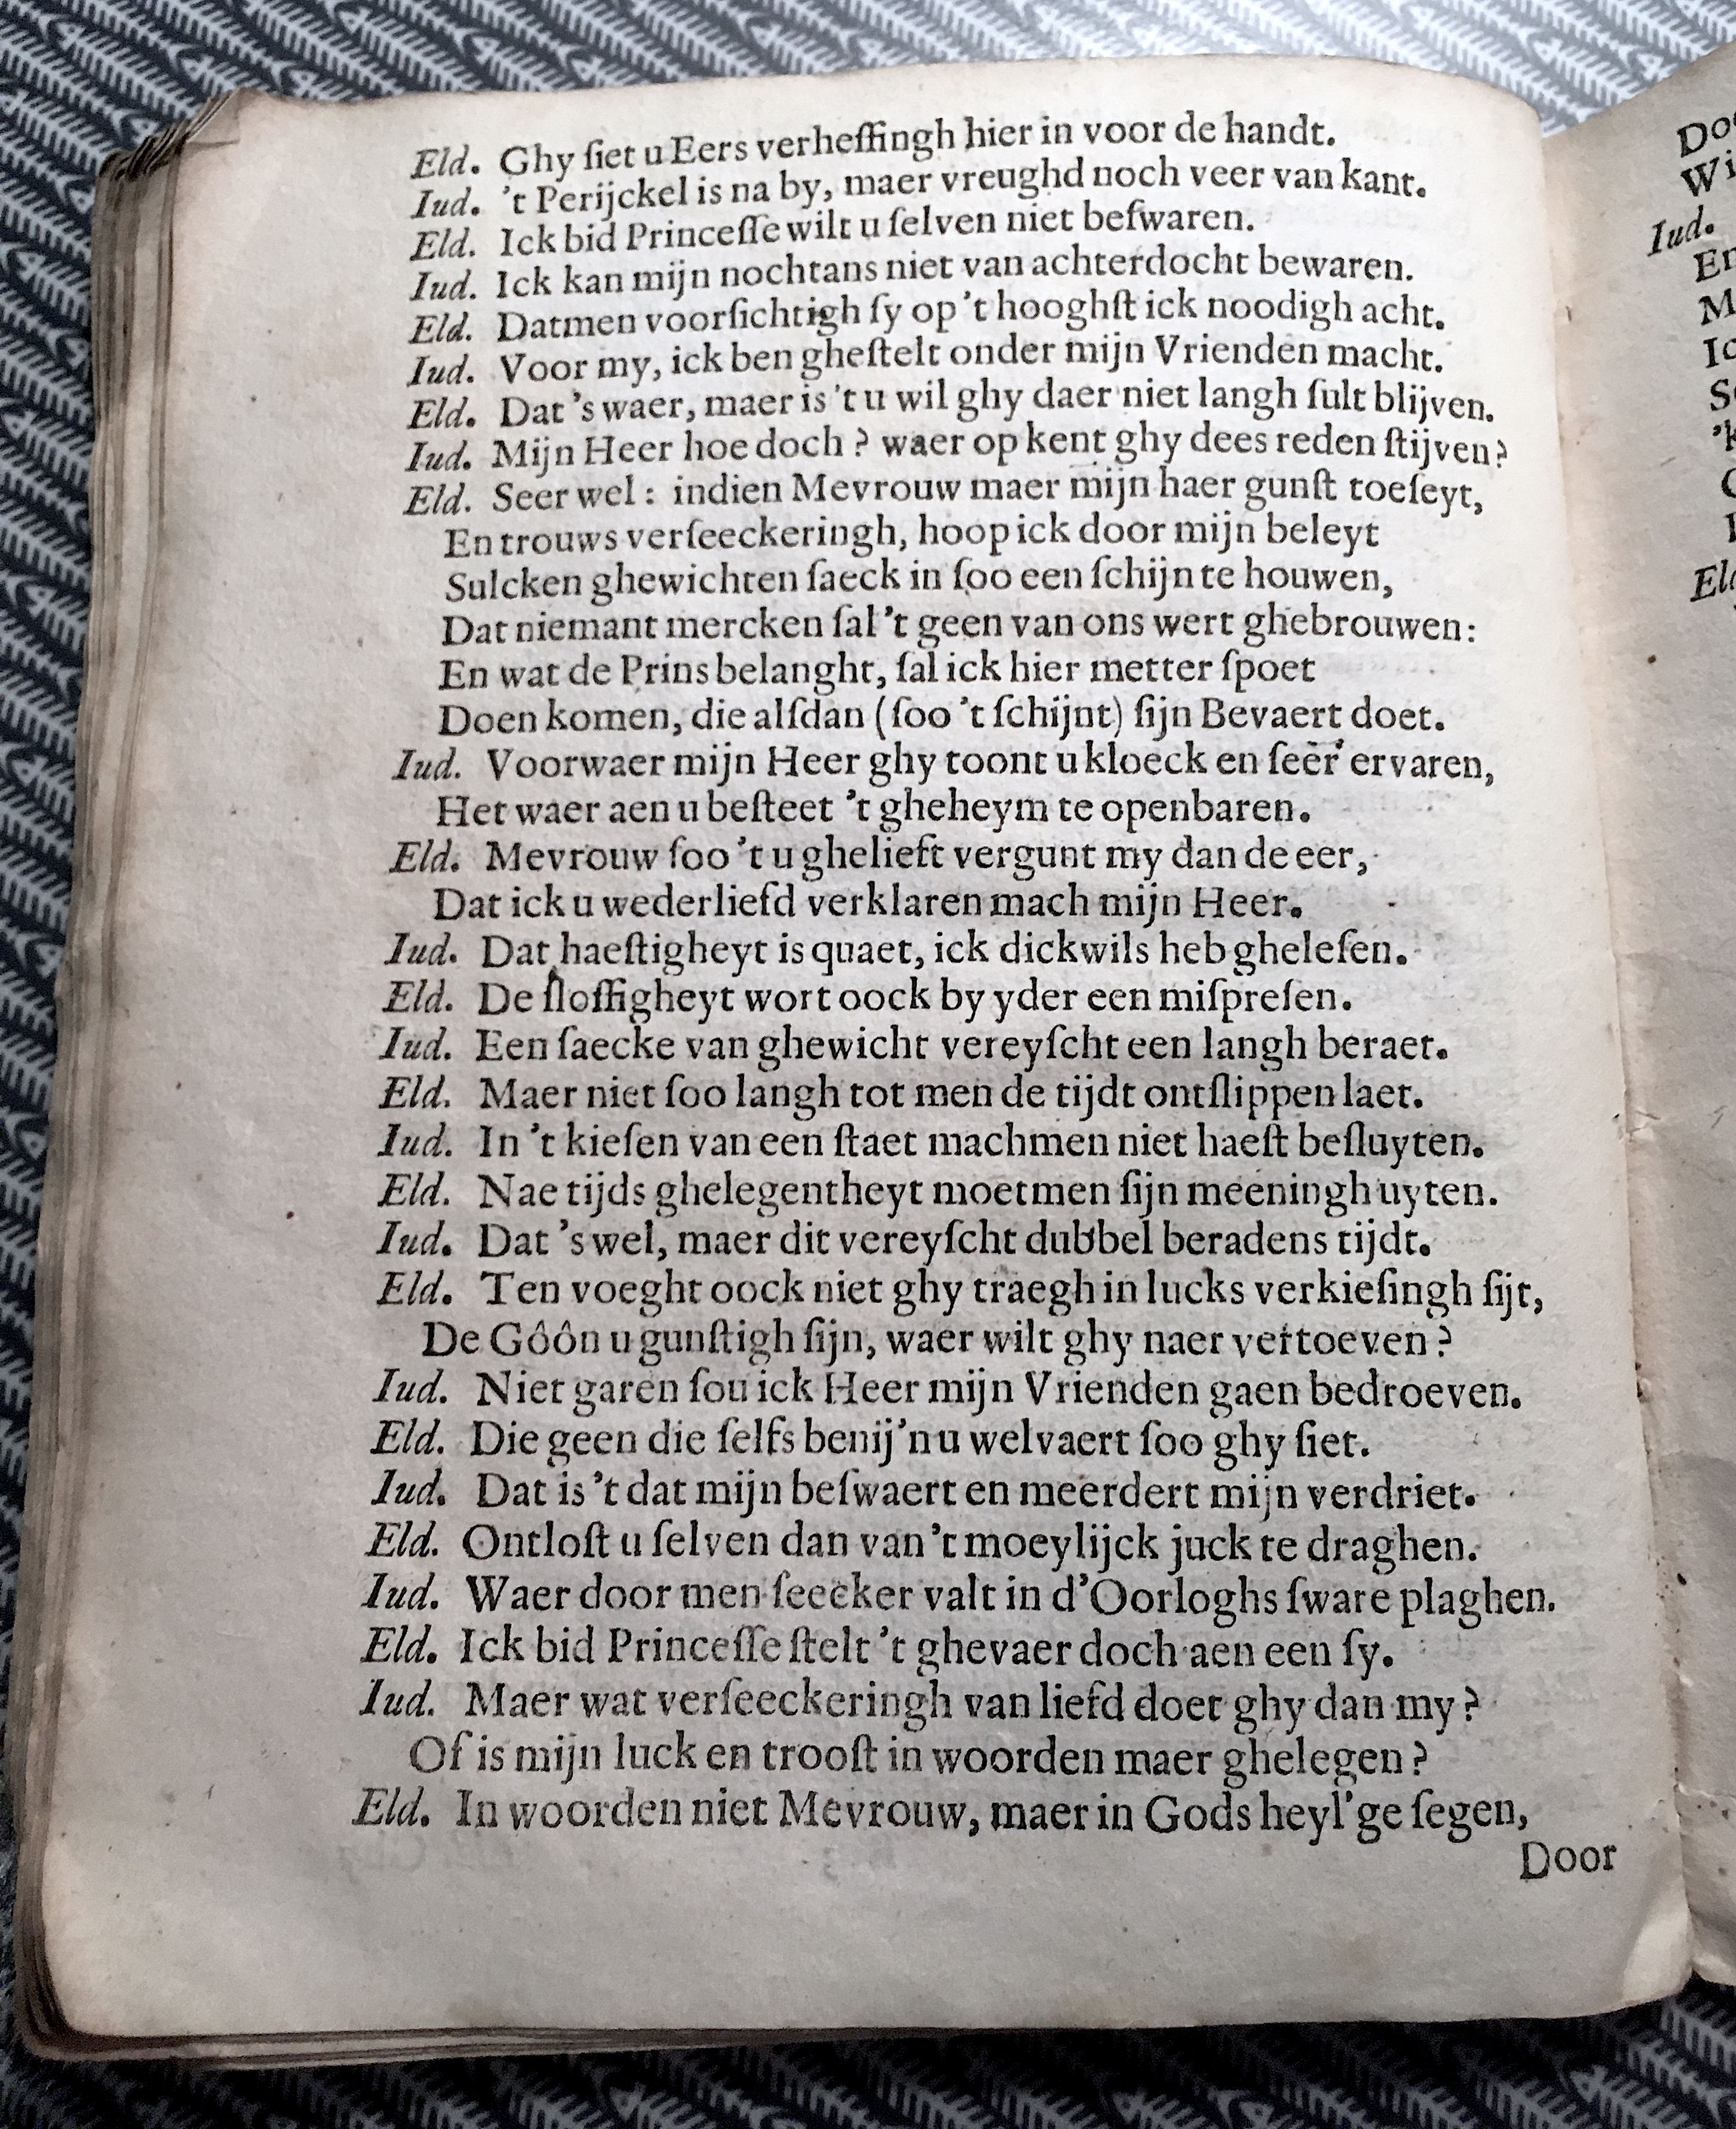 Eld. Ghy ſiet u Eers verheffingh hier in voor de handt.
Iud. 't Perijckel is na by, maer vreughd noch veer van kant.
Eld. Ick bid Princeſſe wilt u ſelven niet beſwaren.
Iud. Ick kan mijn nochtans niet van achterdocht bewaren.
Eld. Datmen voorſichtigh ſy op 't hooghſt ick noodigh acht.
Iud. Voor my, ick ben gheſtelt onder mijn Vrienden macht.
Eld. Dat 's waer, maer is 't u wil ghy daer niet langh ſult blijven.
Iud. Mijn Heer hoe doch? waer op kent ghy dees reden ſtijven?
Eld. Seer wel: indien Mevrouw maer mijn haer gunſt toeſeyt,
En trouws verſeeckeringh, hoop ick door mijn beleyt
Sulcken ghewichten ſaeck in ſoo een ſchijn te houwen,
Dat niemant mercken ſal 't geen van ons wert ghebrouwen:
En wat de Prins belanght, ſal ick hier metter ſpoet
Doen komen, die alſdan (ſoo 't ſchijnt) ſijn Bevaert doet.
Iud. Voorwaer mijn Heer ghy toont u kloeck en ſeer ervaren,
Het waer aen u beſteet 't gheheym te openbaren.
Eld. Mevrouw ſoo 't u ghelieft vergunt my dan de eer,
Dat ick u wederliefd verklaren mach mijn Heer.
Iud. Dat haeſtigheyt is quaet, ick dickwils heb gheleſen.
Eld. De ſloffigheyt wort oock by yder een miſpreſen.
Iud. Een ſaecke van ghewicht vereyſcht een langh beraet.
Eld. Maer niet ſoo langh tot men de tijdt ontſlippen laet.
Iud. In 't kieſen van een ſtaet machmen niet haeſt beſluyten.
Eld. Nae tijds ghelegentheyt moetmen ſijn meeningh uyten.
Iud. Dat 's wel, maer dit vereyſcht dubbel beradens tijdt.
Eld. Ten voeght oock niet ghy traegh in lucks verkieſingh ſijt,
De Gôôn u gunſtigh ſijn, waer wilt ghy naer vertoeven?
Iud. Niet garen ſou ick Heer mijn Vrienden gaen bedroeven.
Eld. Die geen die ſelfs benij'n u welvaert ſoo ghy ſiet.
Iud. Dat is 't dat mijn beſwaert en meerdert mijn verdriet.
Eld. Ontloſt u ſelven dan van 't moeylijck juck te draghen.
Iud. Waer door men ſeecker valt in d'Oorloghs ſware plaghen.
Eld. Ick bid Princeſſe ſtelt 't ghevaer doch aen een ſy.
Iud. Maer wat verſeeckeringh van liefd doet ghy dan my?
Of is mijn luck en trooſt in woorden maer ghelegen?
Eld. In woorden niet Mevrouw, maer in Gods heyl'ge ſegen,
Door
Wi
Iud.